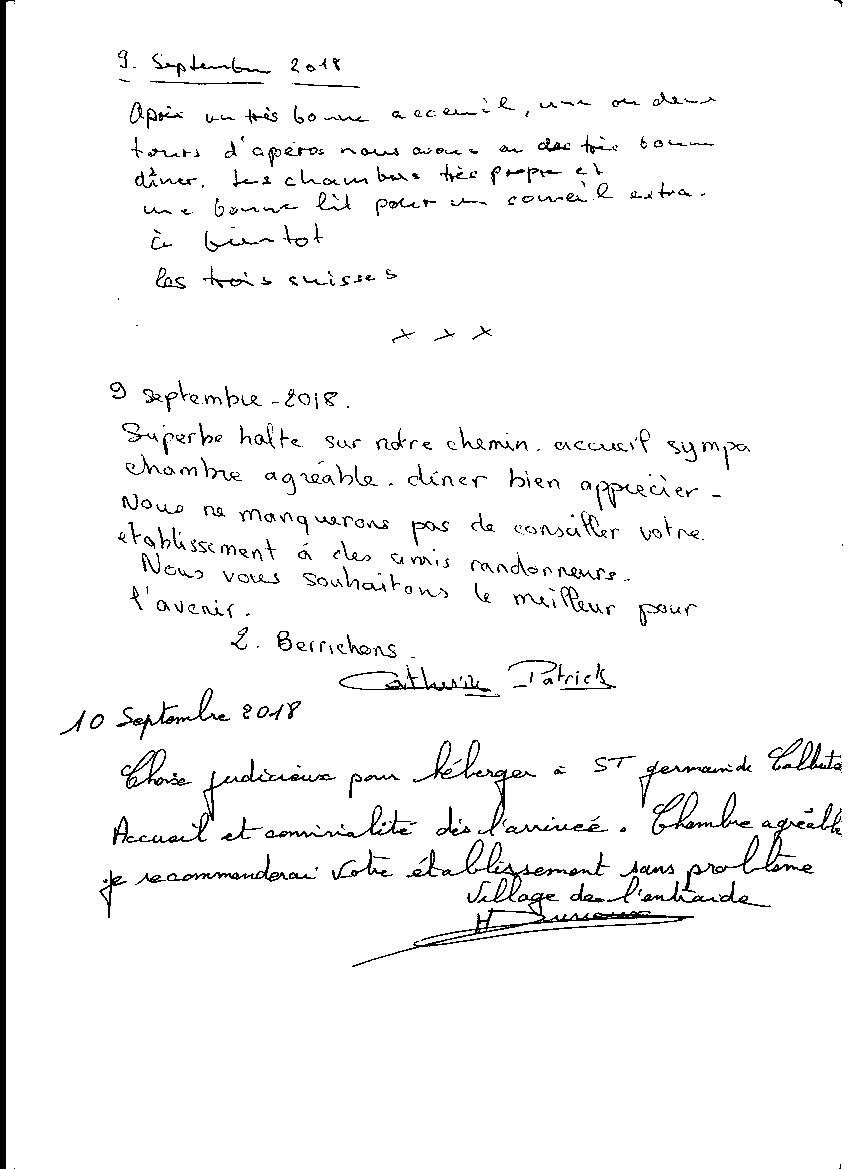 9. September 2018
Après un très bonne acceuil, une ou deux
tours d'apéros nous avons eu des très bonne
dîner. Les chambers très propre et
une bonne lit pour un conseil extra.
à bientot
les trois suisses
9 septembre - 2018.
Superbe halte sur notre chemin. accueil sympa
chambre agréable. dîner bien apprécier -
Nous ne manquerons pas de conseiller votre
etablissement à des amis randonneurs.
Nous vous souhaitons le meilleur pour
l'avenir.
2. Berrichons.
Catherine Patrick
10 Septembre 2018
Choix judicieux pour héberger à ST germain de Calberte
Accueil et convivialité dès l'arrivée. Chambre agréabl
je recommenderai votre établissement sans problème
Village de l'entraide